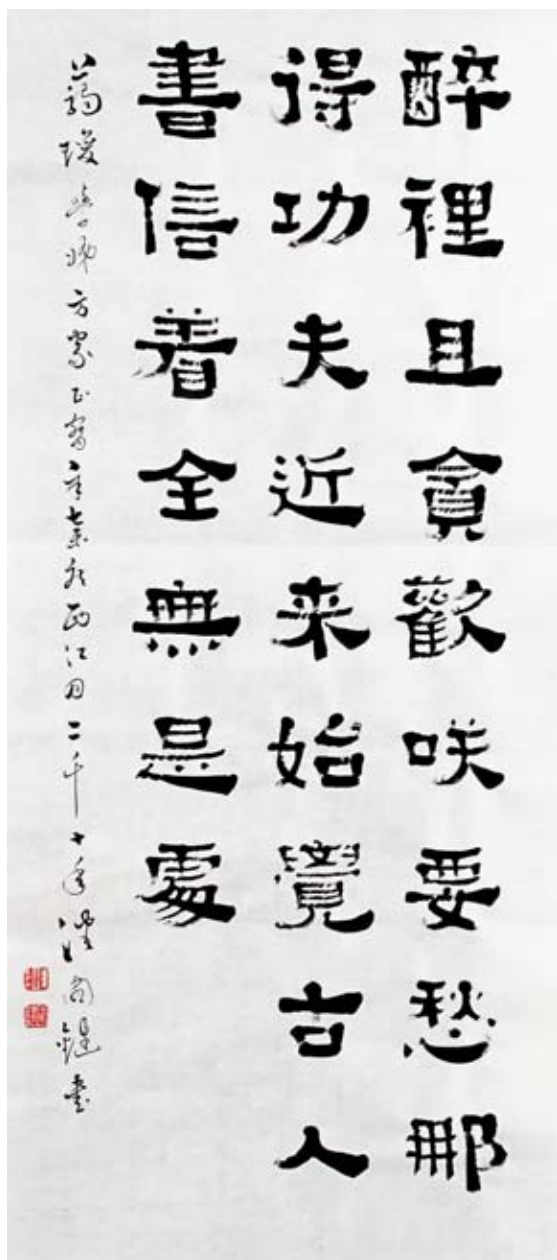 醉裡且貪歡咲要愁那
得功夫近来始覺古人
書信着全無是處
方家正辛棄疾西江月二千十年書